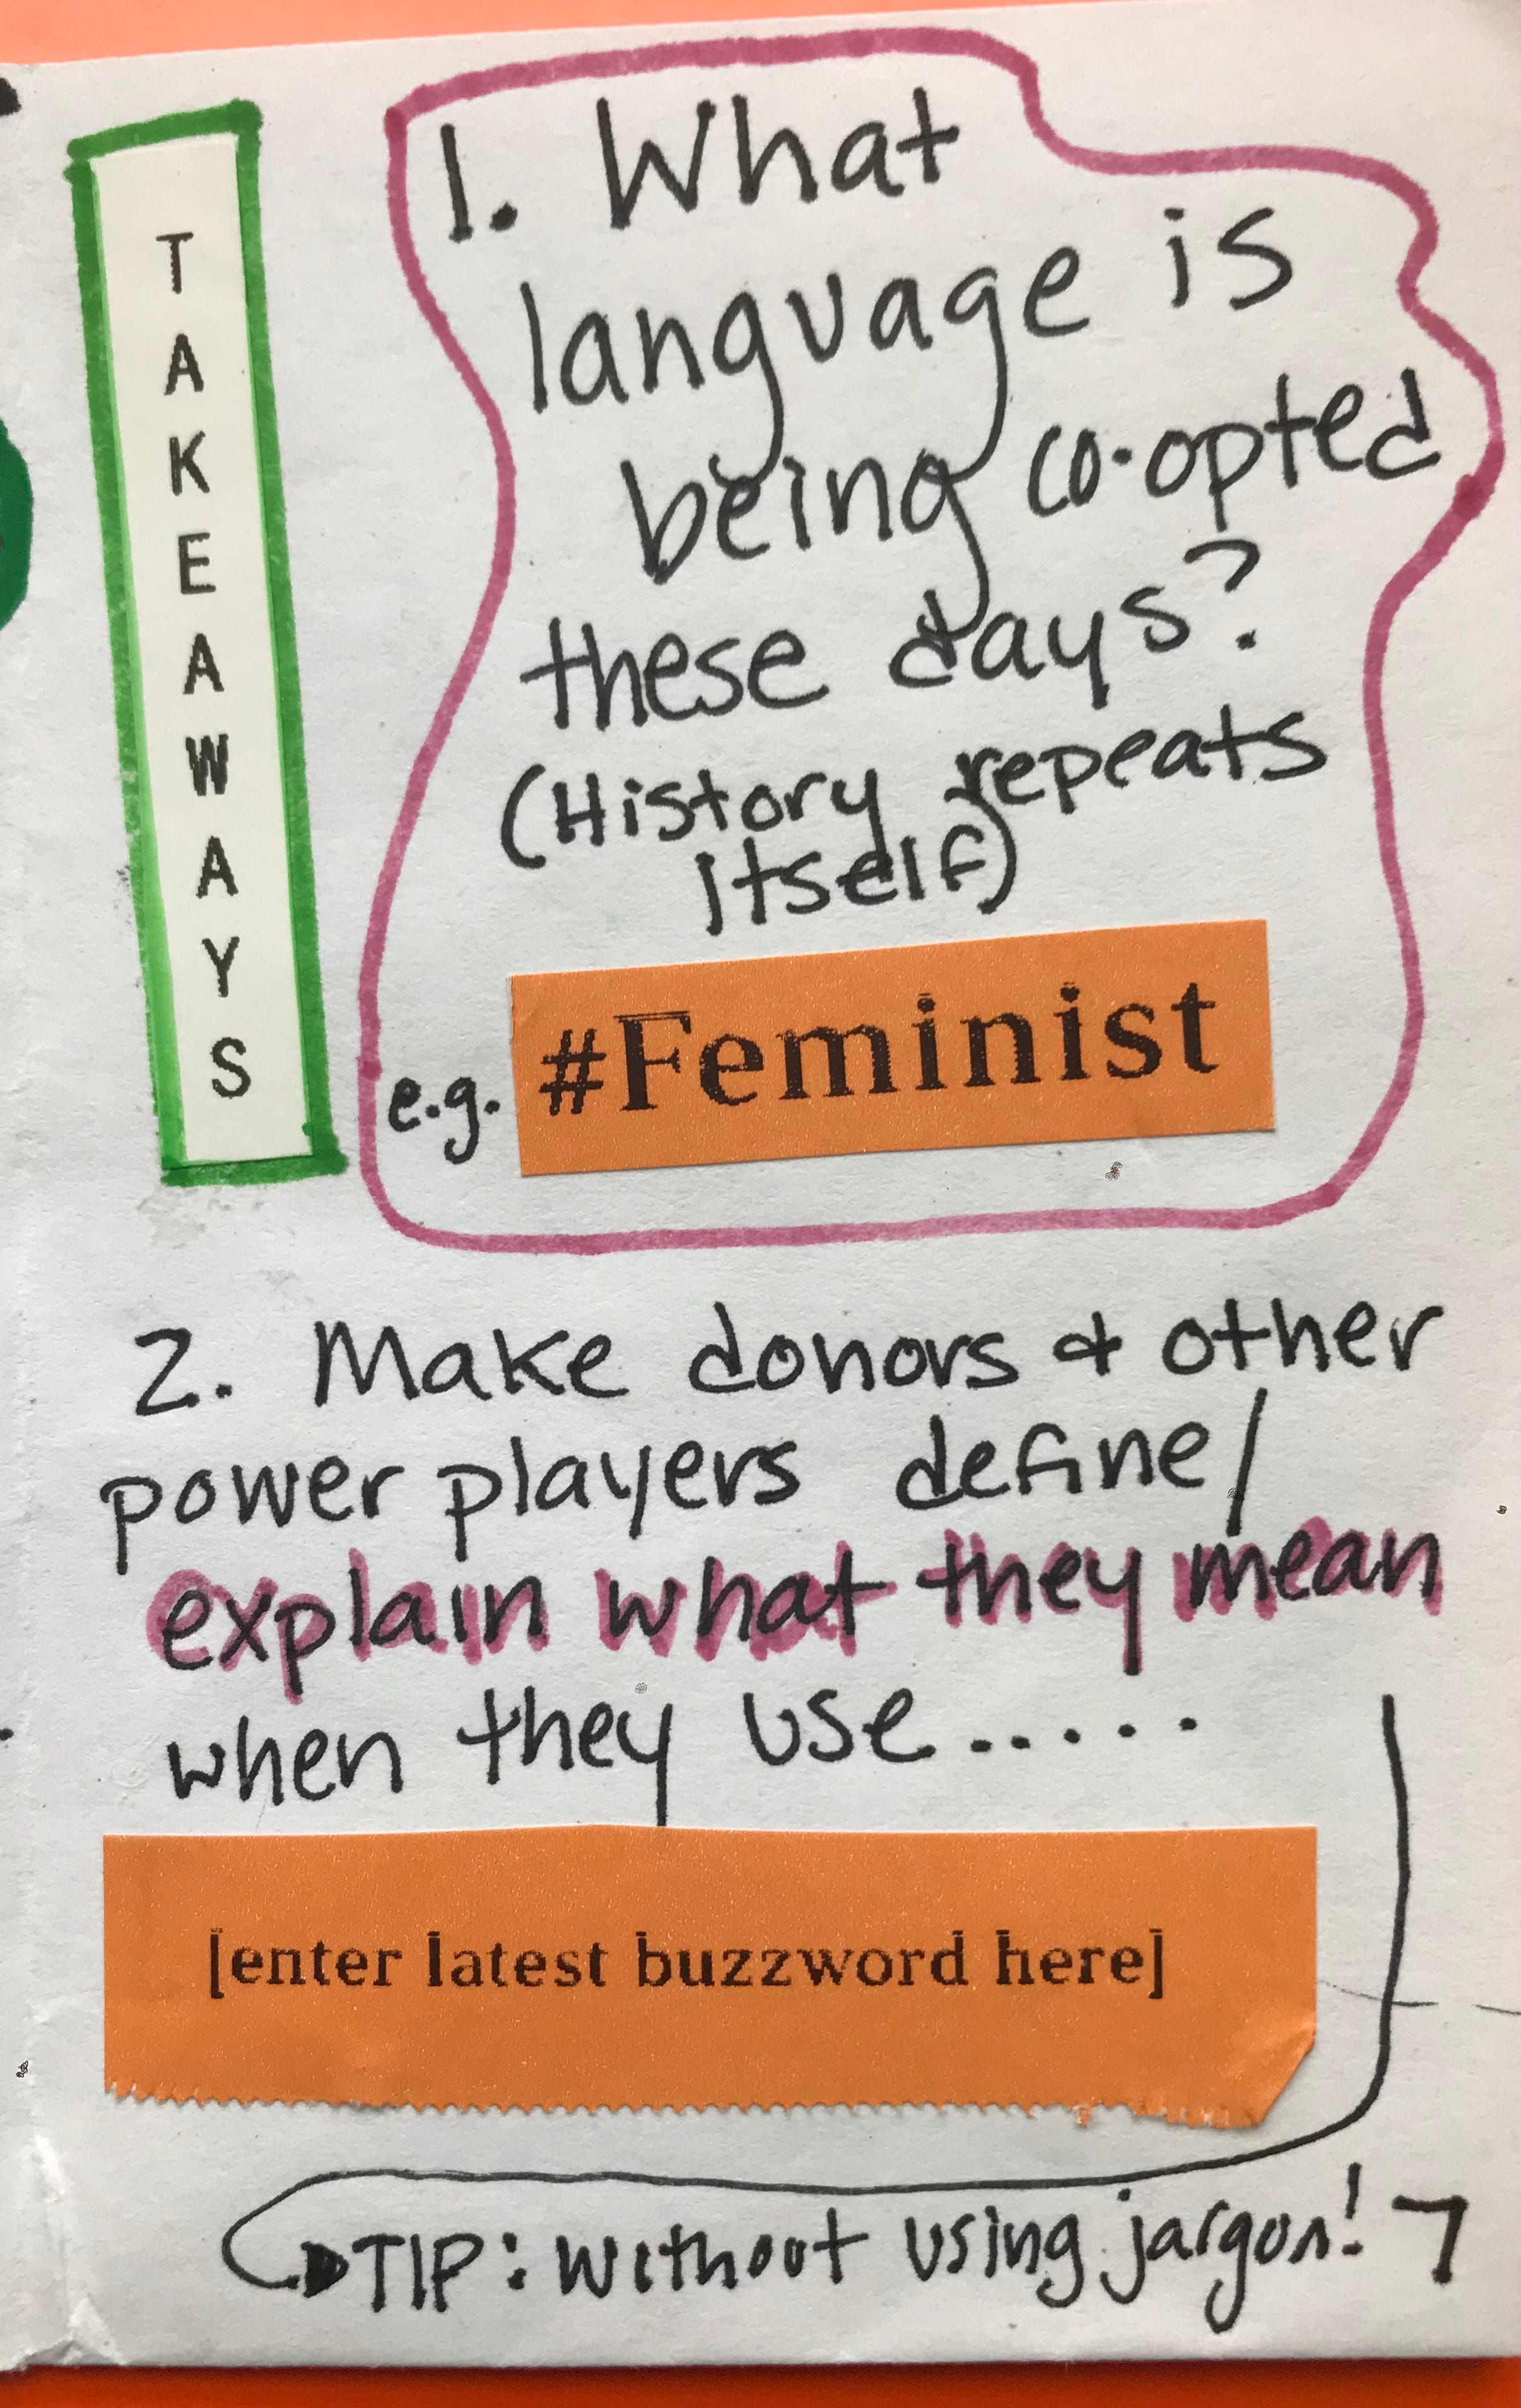 TAKEAWAYS
1. What
language is
being co-opted
these days?
(History repeats
itself)
e.g. #Feminist
2. Make donors & other
power players define/
explain what they mean
when they use.....
[enter latest buzzword here]
TIP: without using jargon! 7